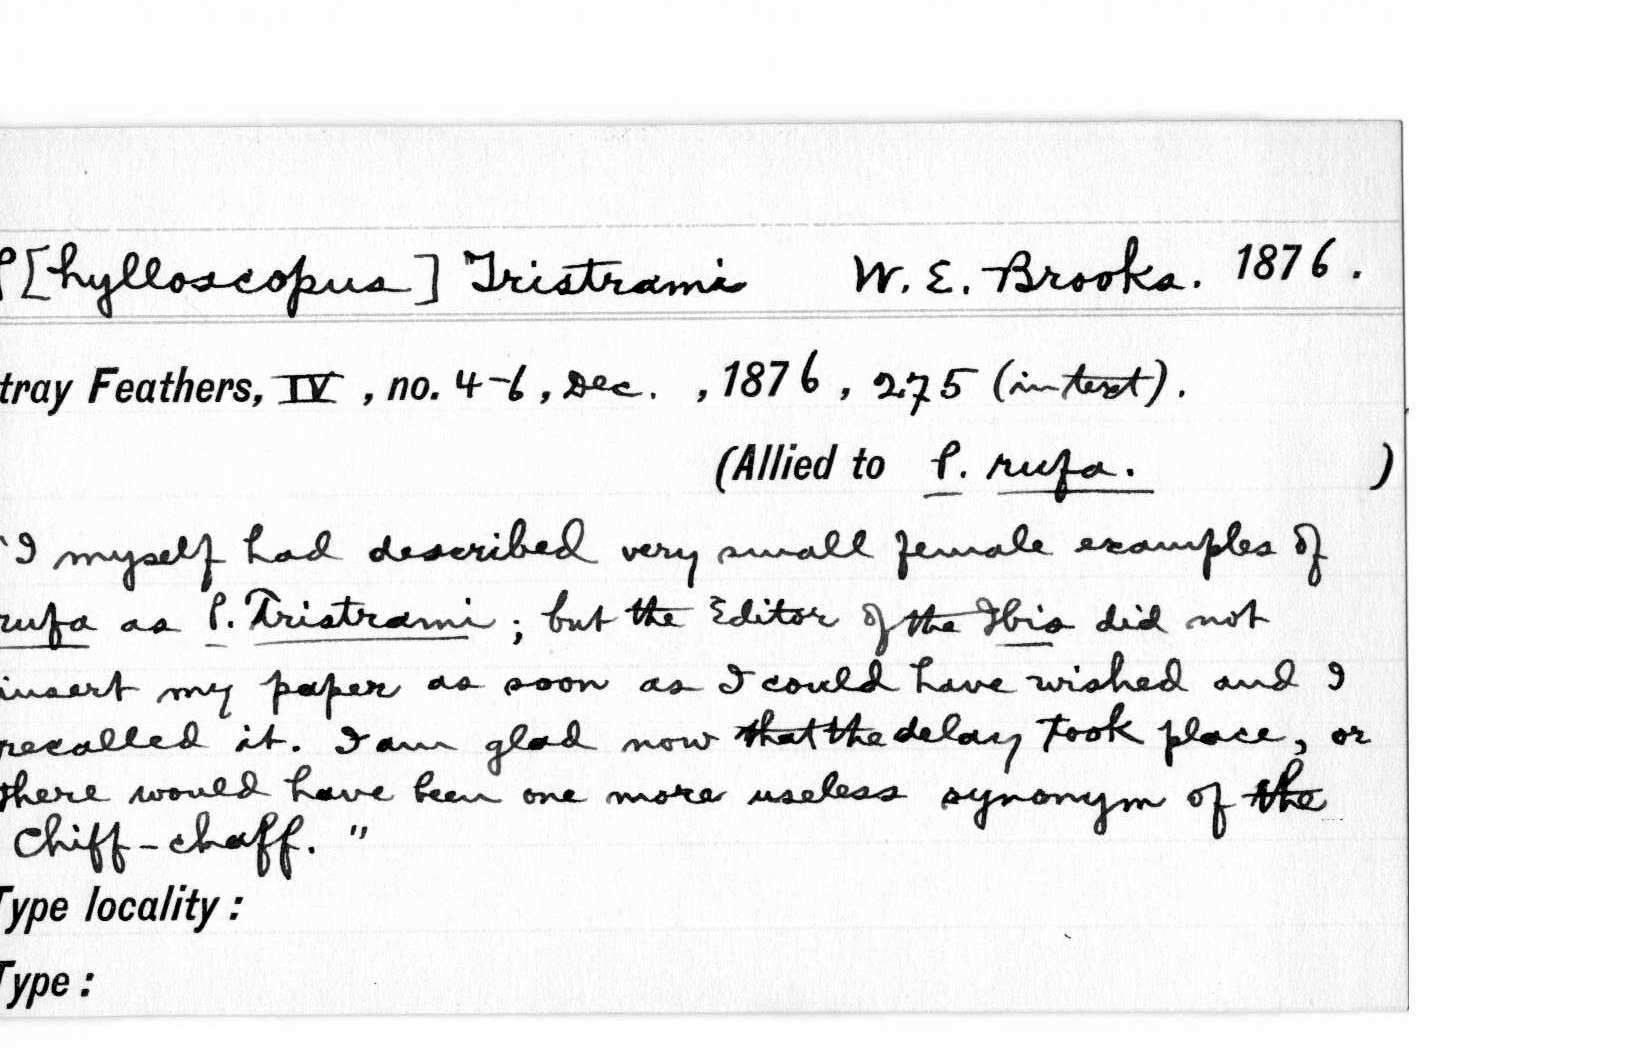 P[hylloscopus] Tristrami W. E. Brooks. 1876.
tray Feathers, IV, no. 4-6, Dec. , 1876, 275 (in text).
(Allied to P. rufa. )
"I myself had described very small female examples of
rufa as P. Tristrami; but the Editor of the Ibis did not
insert my paper as soon as I could have wished and I
recalled it. I am glad now that the delay took place, or
there would have been one more useless synonym of the
Chiff-chaff."
Type locality:
Type: